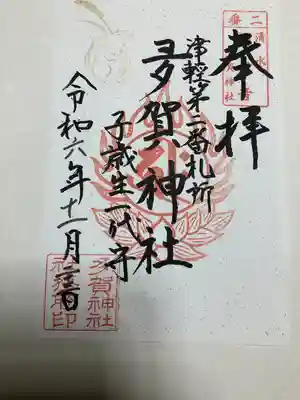 奉拝
津軽第二番札所
多賀神社
子歳生一代守
令和六年十一月三日
多賀神社
社務所印